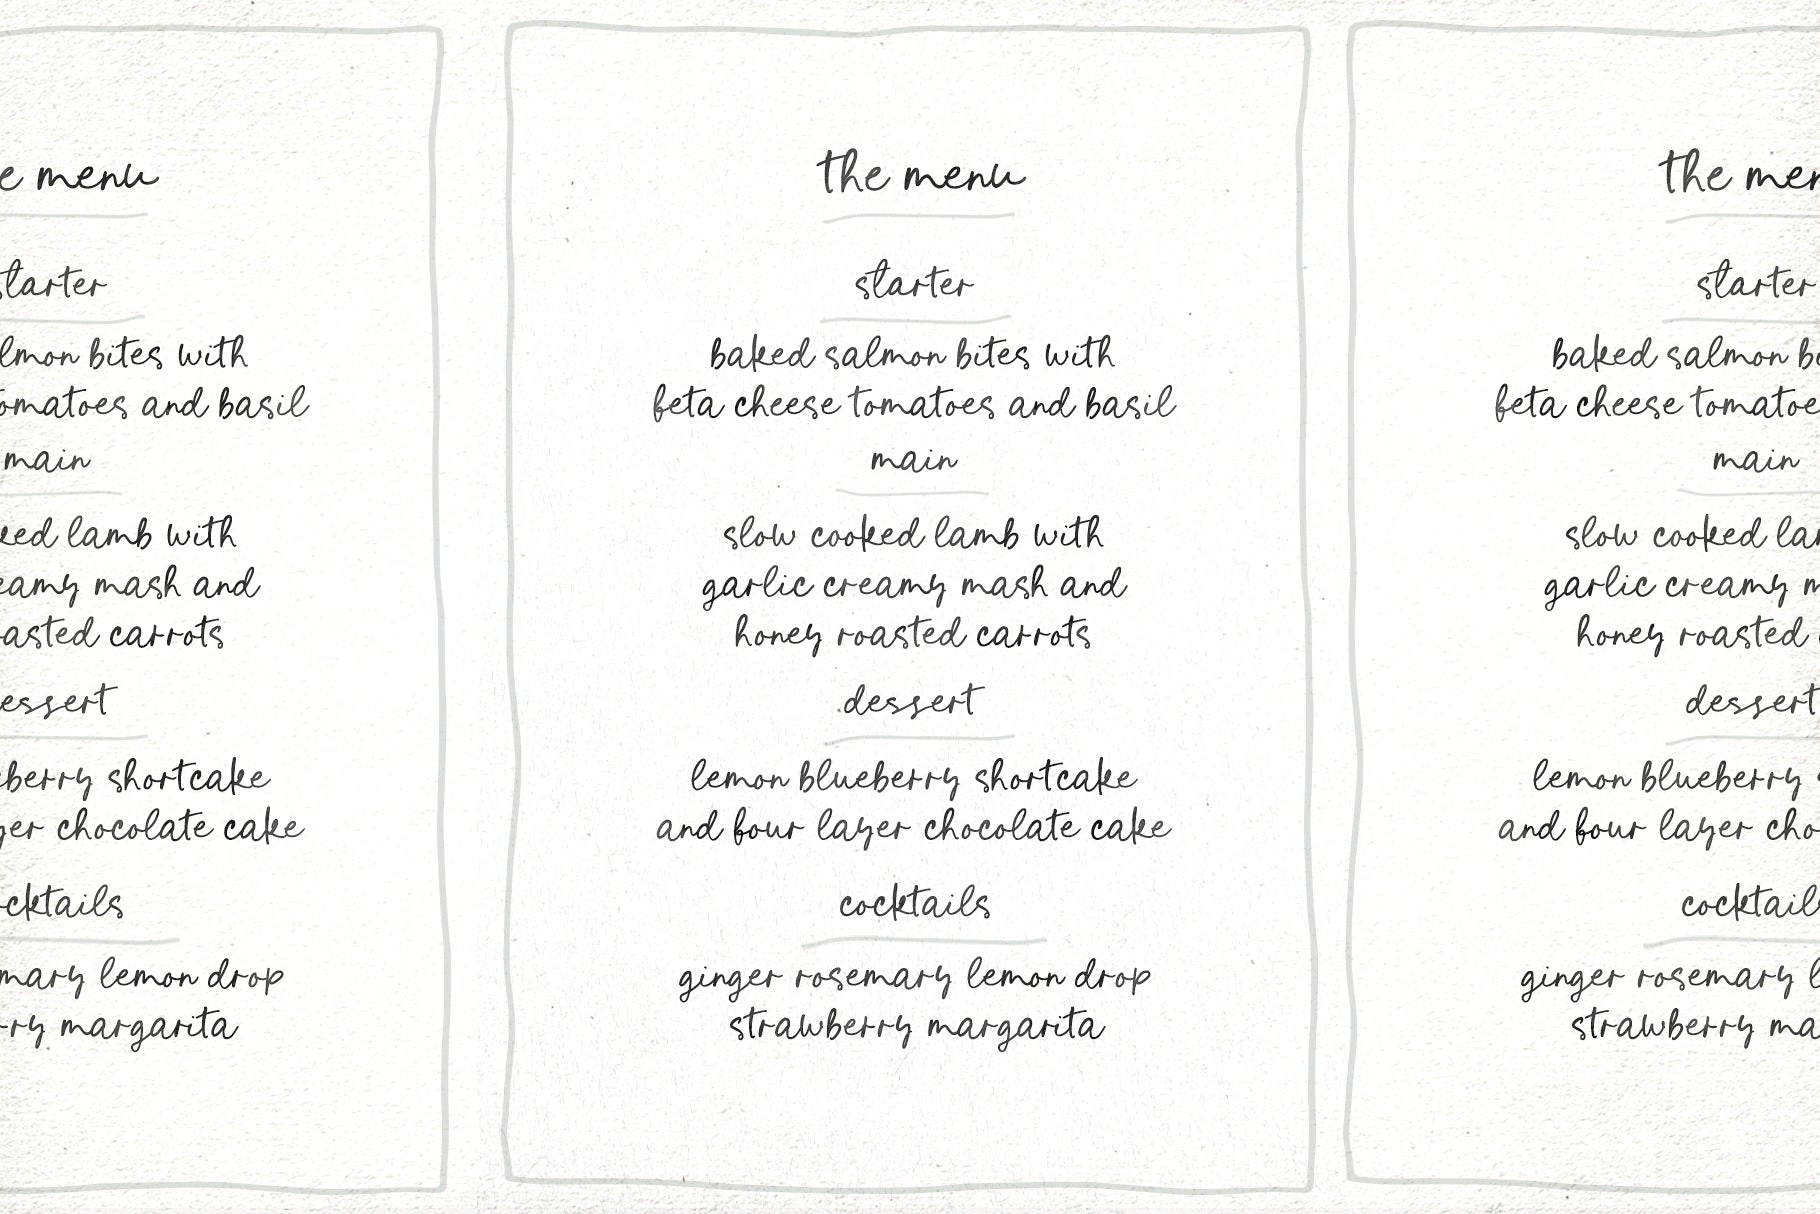 e menu
starter
lmon bites with
omatoes and basil
main
ked lamb with
eamy mash and
oasted carrots
essert
eberry shortcake
yer chocolate cake
ocktails
mary lemon drop
rry margarita
the menu
starter
baked salmon bites with
feta cheese tomatoes and basil
main
slow cooked lamb with
garlic creamy mash and
honey roasted carrots
dessert
lemon blueberry shortcake
and four layer chocolate cake
cocktails
ginger rosemary lemon drop
strawberry margarita
the men
starter
baked salmon bi
feta cheese tomatoe
main
slow cooked lam
garlic creamy m
honey roasted
dessert
lemon blueberry
and four layer cho
cocktails
ginger rosemary l
strawberry ma